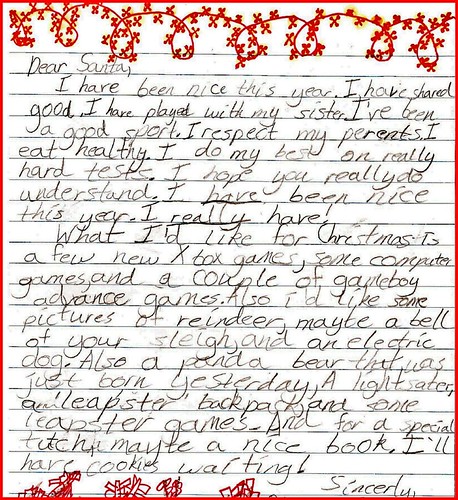 Dear Santa,
I have been nice this year. I have shared
good. I have played with my sister. I've been
a good sport. I respect my perents. I
eat healthy. I do my best on really
hard tests. I hope you really do
understand. I have been nice
this year. I really have!
What I'd like for Christmas is
a few new Xbox games, some computer
games, and a couple of gameboy
advance games. Also i'd like some
pictures of reindeer, maybe a bell
of your sleigh, and an electric
dog. Also a panda bear that was
just born yesterday, A lightsater,
and 'leapster' backpack, and some
leapster games. And for a special
tutch, maybe a nice book. I'll
have cookies waiting!
Sincerly,